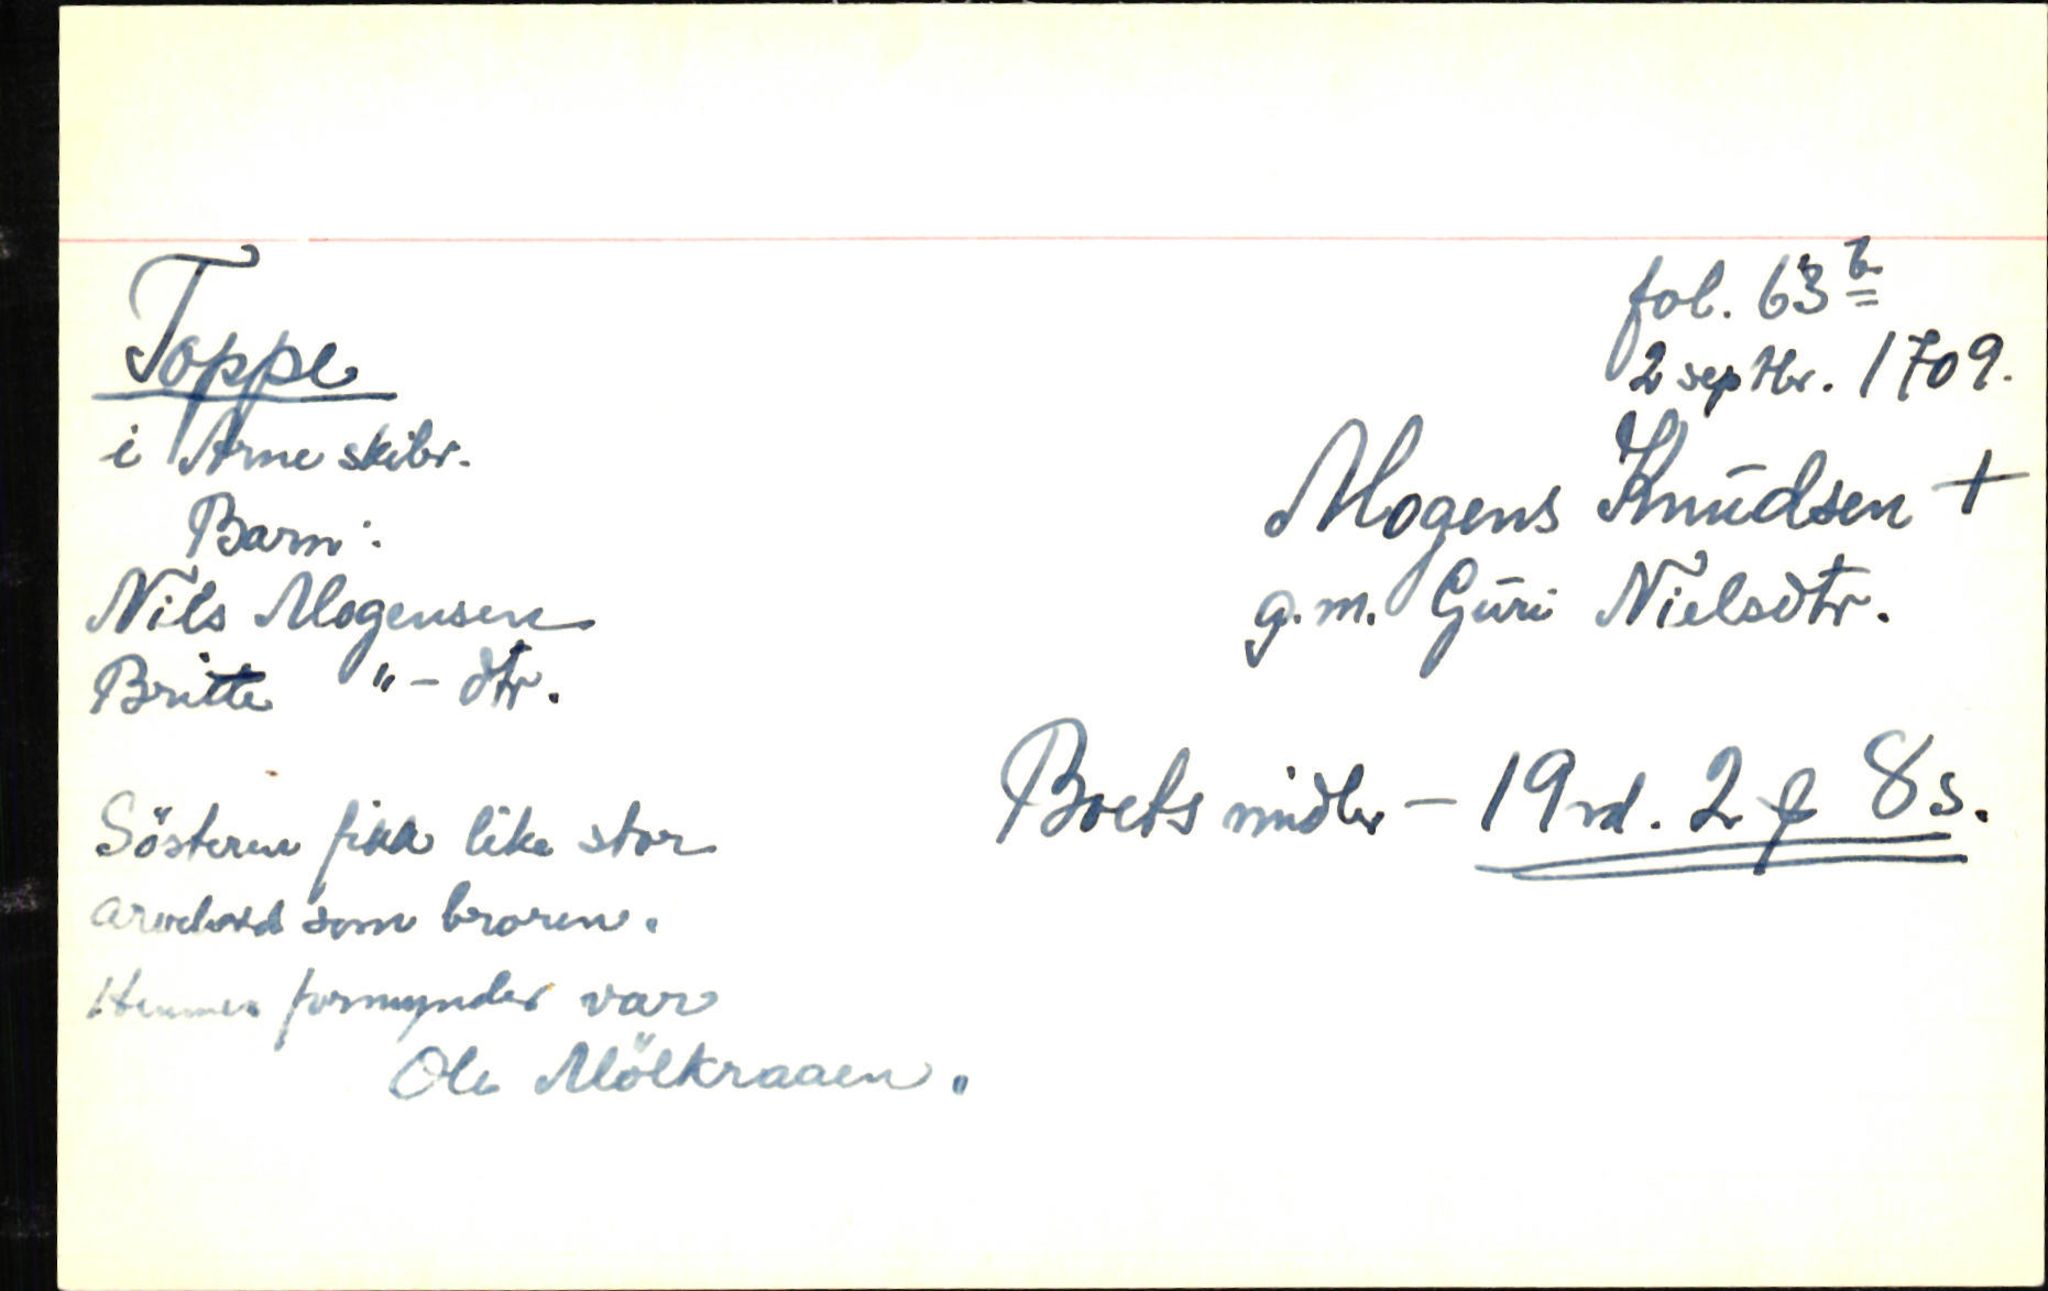 Toppe
i Arne skibr.
Barn:
Nils Mogensen
Britte "- dtr.
Sösteren fikk like stor
som broren.
Hennes formynder var
Ole Mölkraaen.
fol. 63 b
2 septbr. 1709.
Mogens Knudsen +
g.m. Guri Nielsdtr.
Boets midler - 19 rd. 2 8 s.